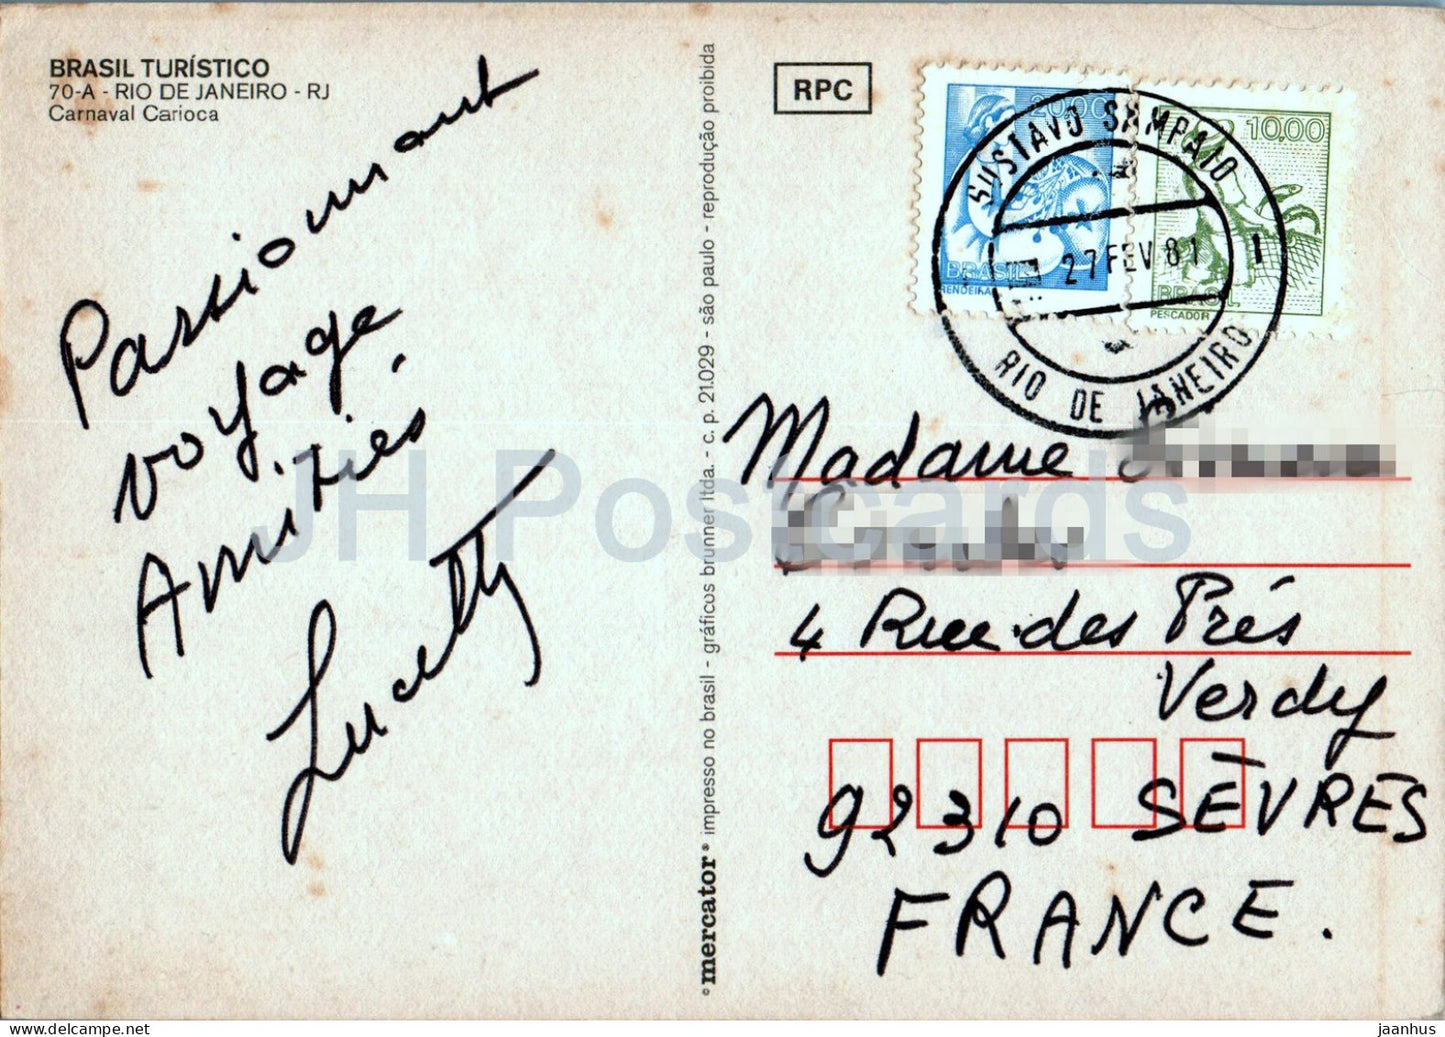 BRASIL TURÍSTICO
70-A - RIO DE JANEIRO - RJ
Carnaval Carioca
Passionnant
voyage.
Amitiés
Lucetty
mercator® impresso no brasil - gráficos brunner ltda. - c. p. 21.029 - são paulo - reprodução proibida
RPC
20,00
BRASIL
RENDEIRA
10,00
BRASIL
PESCADOR
GUSTAVO SAMPAIO
27 FEV 81
1
RIO DE JANEIRO
Madame
4 Rue des Prés
Verdy
92310 SÈVRES
FRANCE.
JH Postcards
jaanhus
©www.delcampe.net